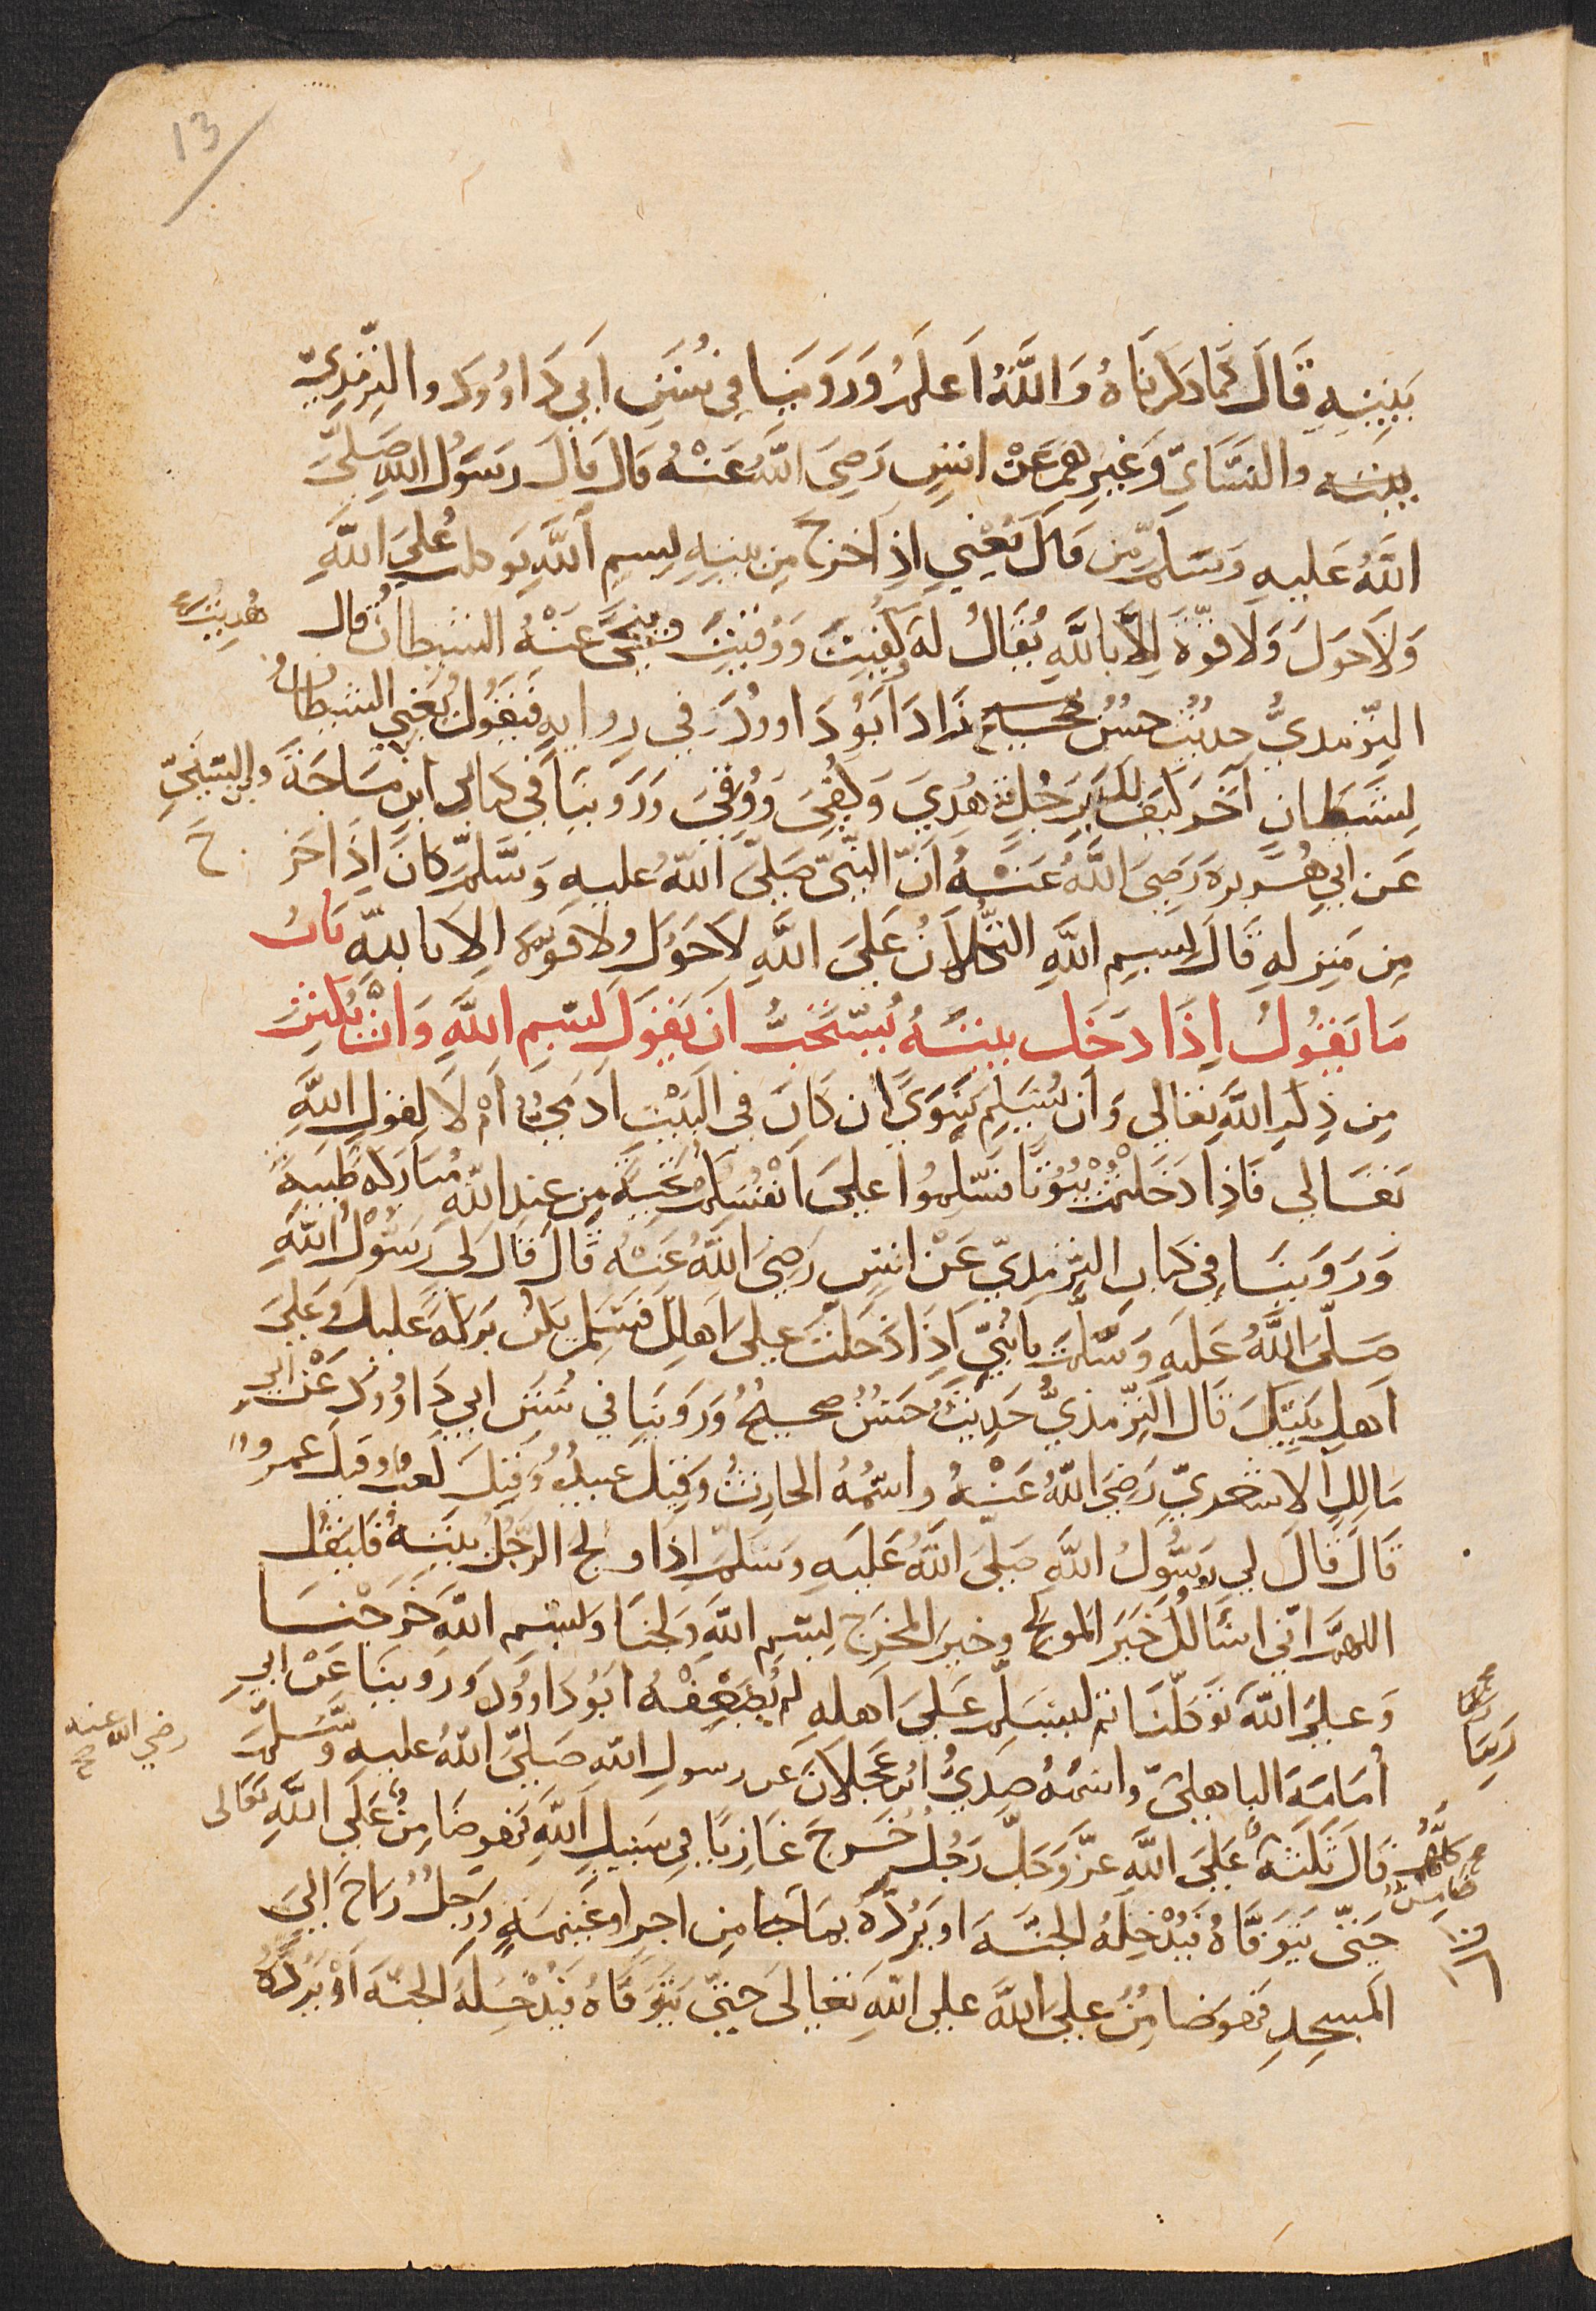 13
بَيْتِهِ قَالَ كَمَا ذَكَرنَاهُ وَاللَّهُ اَعلَمُ وَرَوَينَا فِي سُنَنِ اَبِي دَاوُودَ والتِّرمِذِيّ
بيته والنَّسَايِّ وَغَيرِهِم عَنْ انسٍ رَضِيَ اللَّهُ عَنْهُ قَالَ قالَ رسَوُل اللهِ صَلَّى
اللَّهُ عَلَيهِ وَسَلَّمَ مَن قَالَ يَعْنِي اِذاَ خرج مِن بيتِهِ بِسمِ اللَّهِ توكلت عُلَيَ اللَّهِ
وَلَا حَولَ وَلَا قوَّةَ إِلَّا باللَّهِ يُقَالُ لَهُ كُفِيتَ وَوُقيتَ وتَنَحَّى عَنْهُ الشيطانُ قال
هُدِيتَ
الترّمذيُّ حديثٌ حسنٌ صحيح زَادَ اَبَوُ دَاوودَ فِي رِوايهِ فَيَقُولُ يَعْنِي الشيطانُ
لِشَيطَانٍ آخَر كَيفَ لك بِرَجُلٍ قد هُدِيَ وَكُفِيَ وَوُقِيَ وَرَوَينَا فِي كتابي ابنِ مَاجَةَ وابن السّنِّي
عَن ابي هُرَيرةَ رَضِيَ اللَّهُ عَنْهُ اَنَّ النَّبيَّ صَلَّى اللهُ عليهِ وَسَلَّمَ كانَ اِذَا خَرَ
ج
مِن مَنزلهِ قَالَ بسمِ اللَّهِ التُّكلَانُ عَلَى اللَّهِ لَا حَوُلَ ولا قوّة اِلا باللهِ بَابُ
مَا يَقُولُ اِذَا دَخَل بيتَهُ يُستَحَبُّ اَن يَقوَلَ بسمِ اللَّهِ وَاَنْ يُكثِرَ
مِن ذِكرِ اللَّهِ تعَالى وَاَن يُسَلِّمَ سَوَيً ان كَانَ فِي البَيْتِ ادَمِيٌّ اَمْ لَا لِقولِ اللَّهِ
تَعَالى فَاذِا دَخَلتمْ بُيُوتًا فسَلِّموُا عليَ اَنْفُسِكُم تحيةً مِن عندِ اللهِ مُبَاركةً طَيبةً
وَرَوَينَا فِي كتابِ التِّرمذِيّ عَنْ انسٍ رَضِيَ اللَّهُ عَنْهُ قَالَ قَالَ لِي رَسُولُ اللهِ
صَلَّى اللَّهُ عَلَيهِ وَسَلَّمَ يابُنَيّ اِذَا دَخَلتَ عليَ اَهلِكَ فسَلِّم يكن بَركةً عَليك وعَليَ
اَهلِ بَيتِكَ قَال التِّرمذيُّ حَدِيثٌ حَسَنٌ صحيحٌ وَرَوَينَا فِي سُنَنِ ابي دَاوُودَ عَنْ ابي
مَالِكٍ الاشعريِّ رَضِيَ اللَّهُ عَنْهُ واسْمُهُ الحارثُ وَقِيلَ عبيدٌ وَقِيلَ كَعب وقيلَ عمروٌ
قَالَ قَالَ لِي رَسُولُ اللَّهِ صَلّى اللَّهُ عَلَيهِ وَسَلَّمَ اِذَا ولَجَ الرَّجُلُ بيتَهُ فَليَقُل
اللهمَّ اِنِّي اسْاَلُكَ خَيَرَ المَولجِ وخيرَ المخرَجِ بسمِ اللَّهِ وَلجنَا وبسم اللهِ خَرَجْنَا
وَعليَ اللهِ تَوَكلّنَا ثم ليسَلِّم عَلىَ اَهلِهِ لم يُضَعِّفْهُ اَبُو دَاوُودَ وَرَوينَا عَنْ ابي
رَبنَا
اُمَامَةَ الباهليّ واسْمُهُ صُدَيُّ ابن عَجلانَ عَن رسولِ اللهِ صَليَّ اللهُ عليهِ وَسَلَّمَ
رضي الله عنه صح
قَالَ ثَلثَةٌ عَلَىَ اللَّهِ عزَّ وَجَلَّ رَجُلٌ خَرَجَ غَازِيًا فِي سَبِيلِ اللَّهِ فَهوَ ضَامِنٌ عَلَى اللَّهِ تعَالى
كلهُم ضَامنٌ
حَتّى يَتوَفَّاهُ فَيُدْخِلَهُ الجنَّةَ او يَرُدَّهُ بمَا جا مِن اجرٍ او غنيمَةٍ ورَجلٌ رَاحَ اِلىَ
المَسجِدِ فهوَ ضامِنٌ عليَ اللَّهِ على اللهِ تعَالى حَتّى يَتوَفَّاهُ فيُدْخِلَهُ الجنَّةَ اَوْ يَردَّهُ